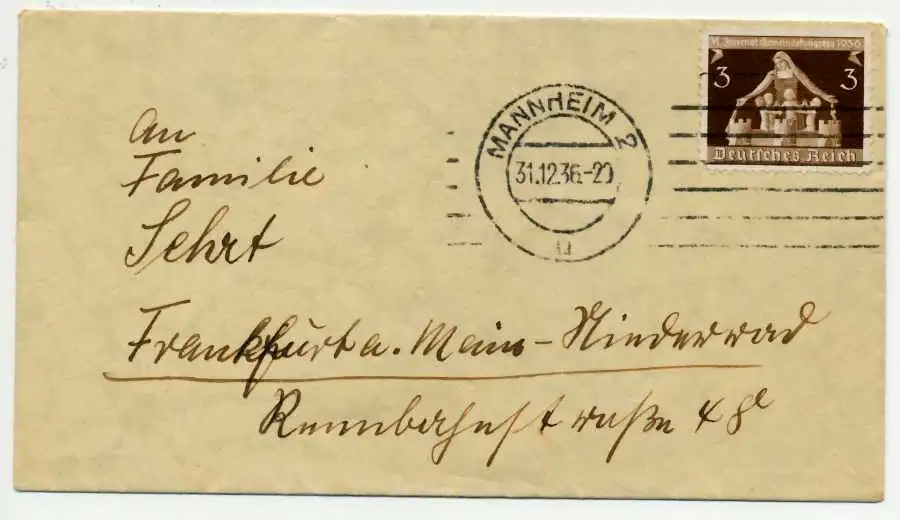 VI. Internat. Gemeindekongress 1936
3 3
Deutsches Reich
MANNHEIM 2
31.12.36.-20
u
An
Familie
Sehrt
Frankfurt a. Main - Niederrad
Rennbahnstraße